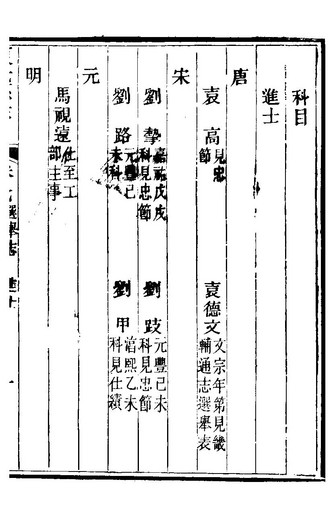 科目
進士
唐
袁高 見忠節 袁德文 文宗年第見畿輔通志選舉表
宋
劉摯 嘉祐戊戌科見忠節 劉跂 元豐己未科見忠節
劉路 元豐己未科 劉甲 淳熙乙未科見仕績
元
馬視遠 仕至工部主事
明
選舉志 進士 一